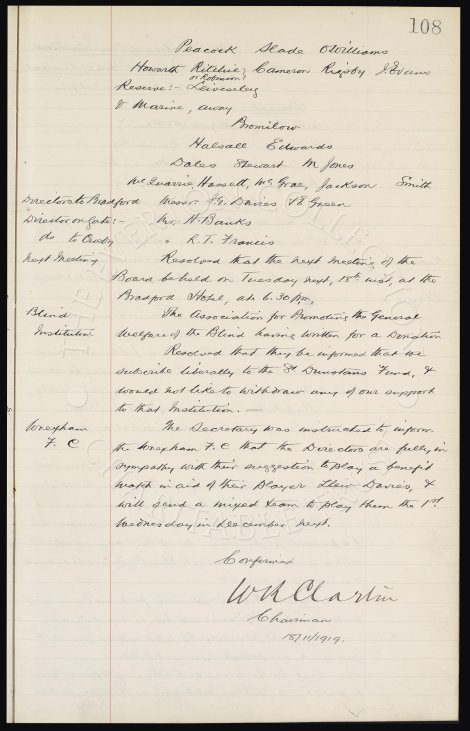 108
Peacock Slade O Williams
Howarth Ritchie, Cameron Rigsby J. Evans
or Robinson
Reserve:- Leivesley
V Marine, away
Bromilow
Halsall Edwards
Dales Stewart M Jones
McQuarrie, Hassett, McGrae, Jackson Smith
Directors to Bradford Messr J.G. Davies & E Green
Director on Gate:- Mr. H. Banks
do to Crosby " R. T. Francis
next meeting Resolved that the next meeting of the
Board be held on Tuesday next, 18th inst, at the
Bradford Hotel, at 6.30 pm,
Blind The Association for Promoting the General
Institution Welfare of the Blind having written for a Donation
Resolved that they be informed that we
subscribe liberally to the St Dunstans Fund, &
would not like to withdraw any of our support
to that Institution. —
Wrexham The Secretary was instructed to inform
F. C the Wrexham F. C that the Directors are fully in
sympathy with their suggestion to play a benefit
match in aid of their Player Llew Davies, &
will send a mixed team to play them the 1st
Wednesday in December next.
Confirmed
Chairman
18/11/1919.